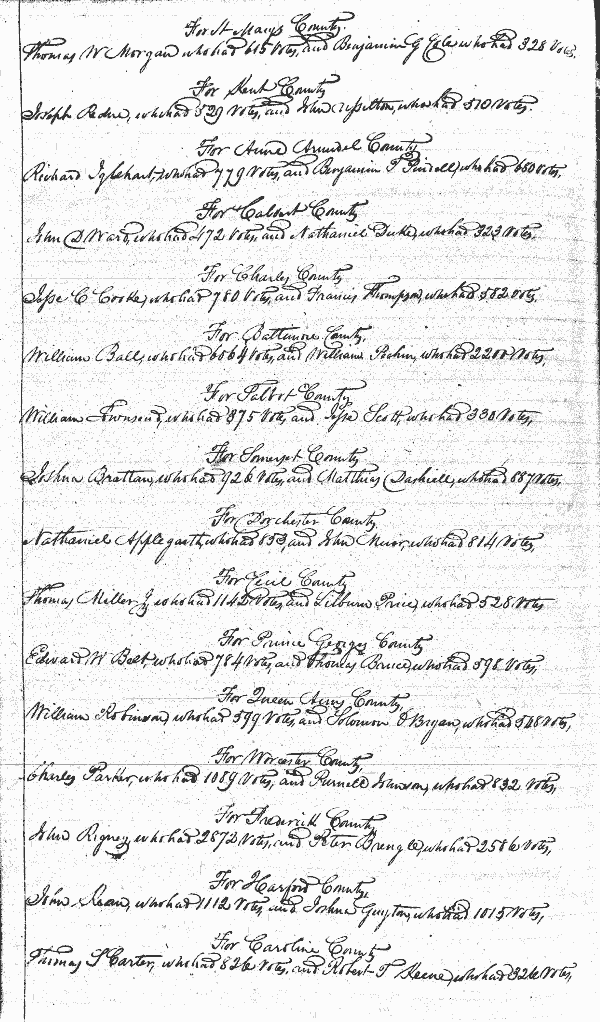 For St Marys County
Thomas W Morgan who had 615 Votes, and Benjamin G Cole who had 328 Votes.
For Kent County
Joseph Redue, who had 529 Votes, and John Ussilton, who had 510 Votes.
For Anne Arundel County
Richard Iglehart, who had 779 Votes, and Benjamin T Pindell, who had 650 Votes.
For Calvert County
John D Ward, who had 472 Votes, and Nathaniel Duke, who had 323 Votes.
For Charles County
Jesse C Cooke, who had 780 Votes, and Francis Thompson, who had 582 Votes.
For Baltimore County,
William Ball, who had 6064 Votes, and William, who had 2200 Votes,
For Talbot County
William Townsend, who had 875 Votes and Jesse Scott, who had 330 Votes,
For Somerset County
Joshua Brattan, who had 926 Votes, and Matthias Dashiell, who had 887 Votes,
For Dorchester County,
Nathaniel Applegarth, who had 853, and John Muir, who had 814 Votes,
For Cecil County
Thomas Miller, who had 1142 Votes, and Lilburn Price, who had 528 Votes
For Prince Georges County
Edward W Belt, who had 784 Votes, and Thomas Bruce, who had 598 Votes,
For Queen Anns County,
William Robinson, who had 599 Votes, and Solomon O Bryan, who had 548 Votes,
For Worcester County,
Charles Parker, who had 1089 Votes, and Purnell Johnson, who had 832 Votes,
For Frederick County
John Rigney, who had 2872 Votes, and Peter Brengle, who had 2586 Votes,
For Harford County,
John Kean, who had 1112 Votes, and Joshua Guyton, who had 1015 Votes,
For Caroline County
Thomas S Carter, who had 826 Votes, and Robert T Keene, who had 326 Votes,